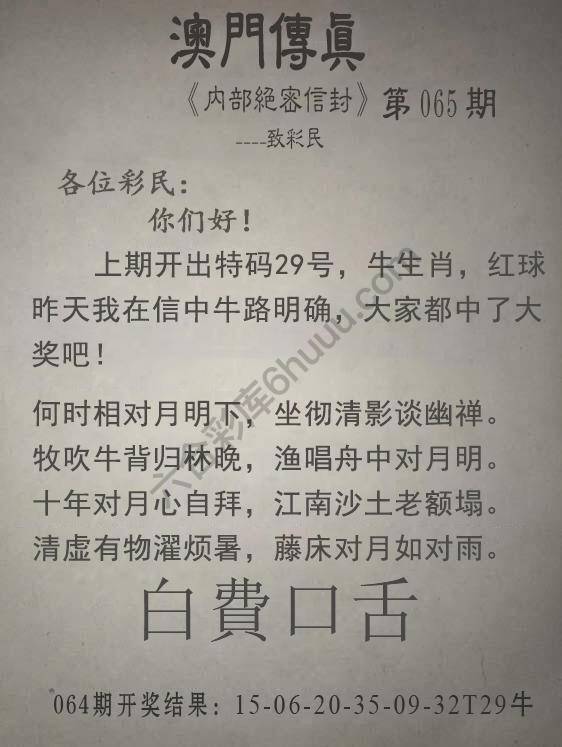 澳門傳眞
《内部絕密信封》第065期
----致彩民
各位彩民：
你们好！
上期开出特码29号，牛生肖，红球
昨天我在信中牛路明确，大家都中了大
奖吧！
何时相对月明下，坐彻清影谈幽禅。
牧吹牛背归林晚，渔唱舟中对月明。
十年对月心自拜，江南沙土老额塌。
清虚有物濯烦暑，藤床对月如对雨。
白費口舌
064期开奖结果：15-06-20-35-09-32T29牛
六合彩库6huuu.com